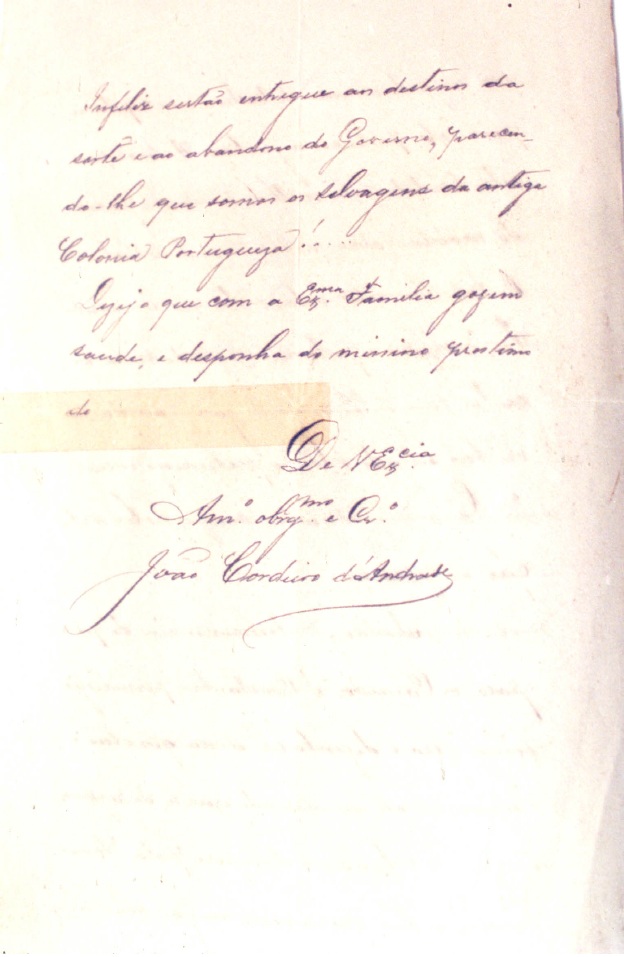 Infeliz sertão entregue aos destinos da
sorte e ao abandono do Governo, parecen-
do-lhe que somos os selvagens da antiga
Colonia Portugueza!...
Dezejo que com a Ex.ma Familia gozem
saude, e desponha do minimo prestimo
de
De V Ex.cia
Am.º obrg.mo e Cr.º
João Cordeiro d'Andrade